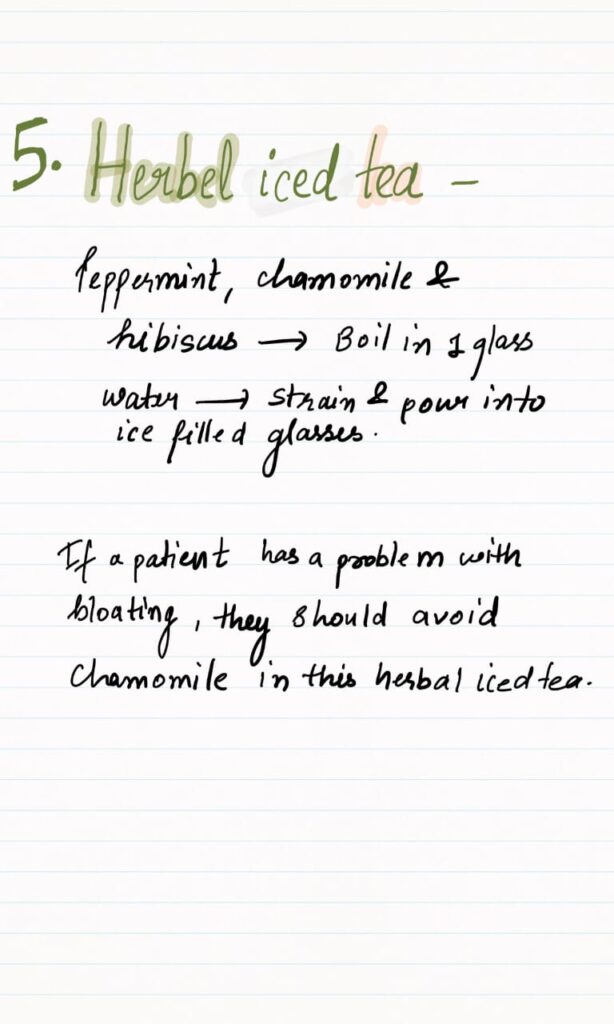 5. Herbel iced tea -
Peppermint, chamomile &
hibiscus → Boil in 1 glass
water → strain & pour into
ice filled glasses.
If a patient has a problem with
bloating, they should avoid
chamomile in this herbal iced tea.